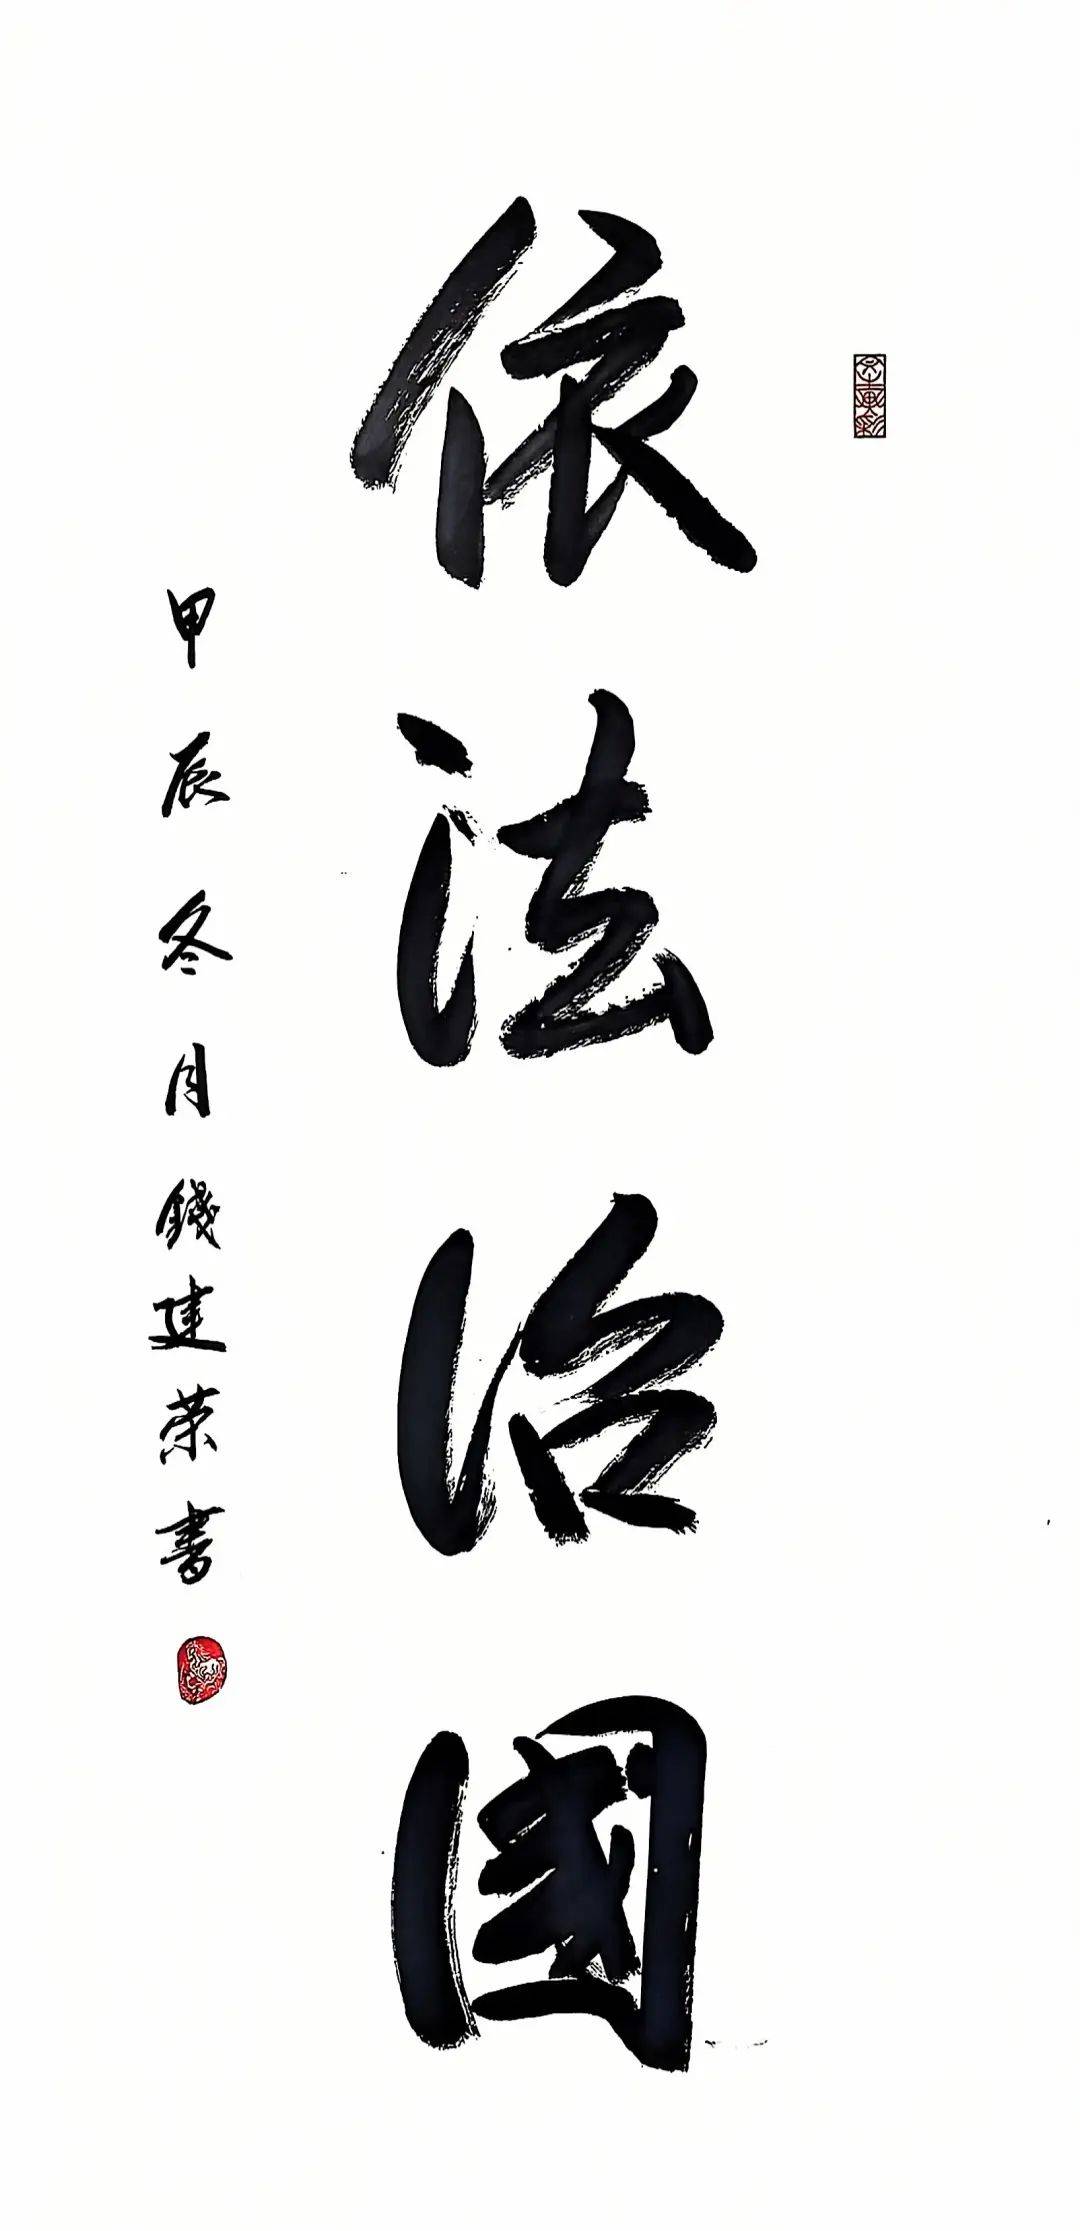 依法治國
甲辰冬月錢建荣書